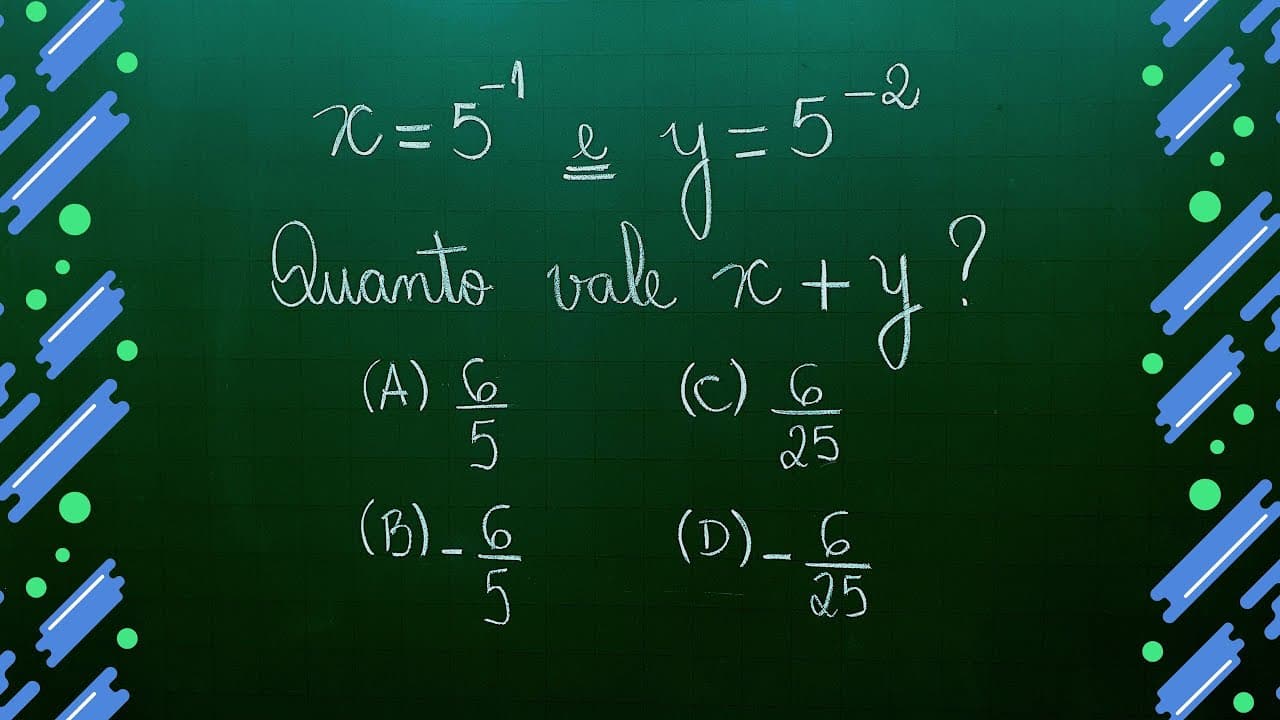 x = 5⁻¹ e y = 5⁻²
Quanto vale x + y ?
(A) 6/5 (C) 6/25
(B) - 6/5 (D) - 6/25